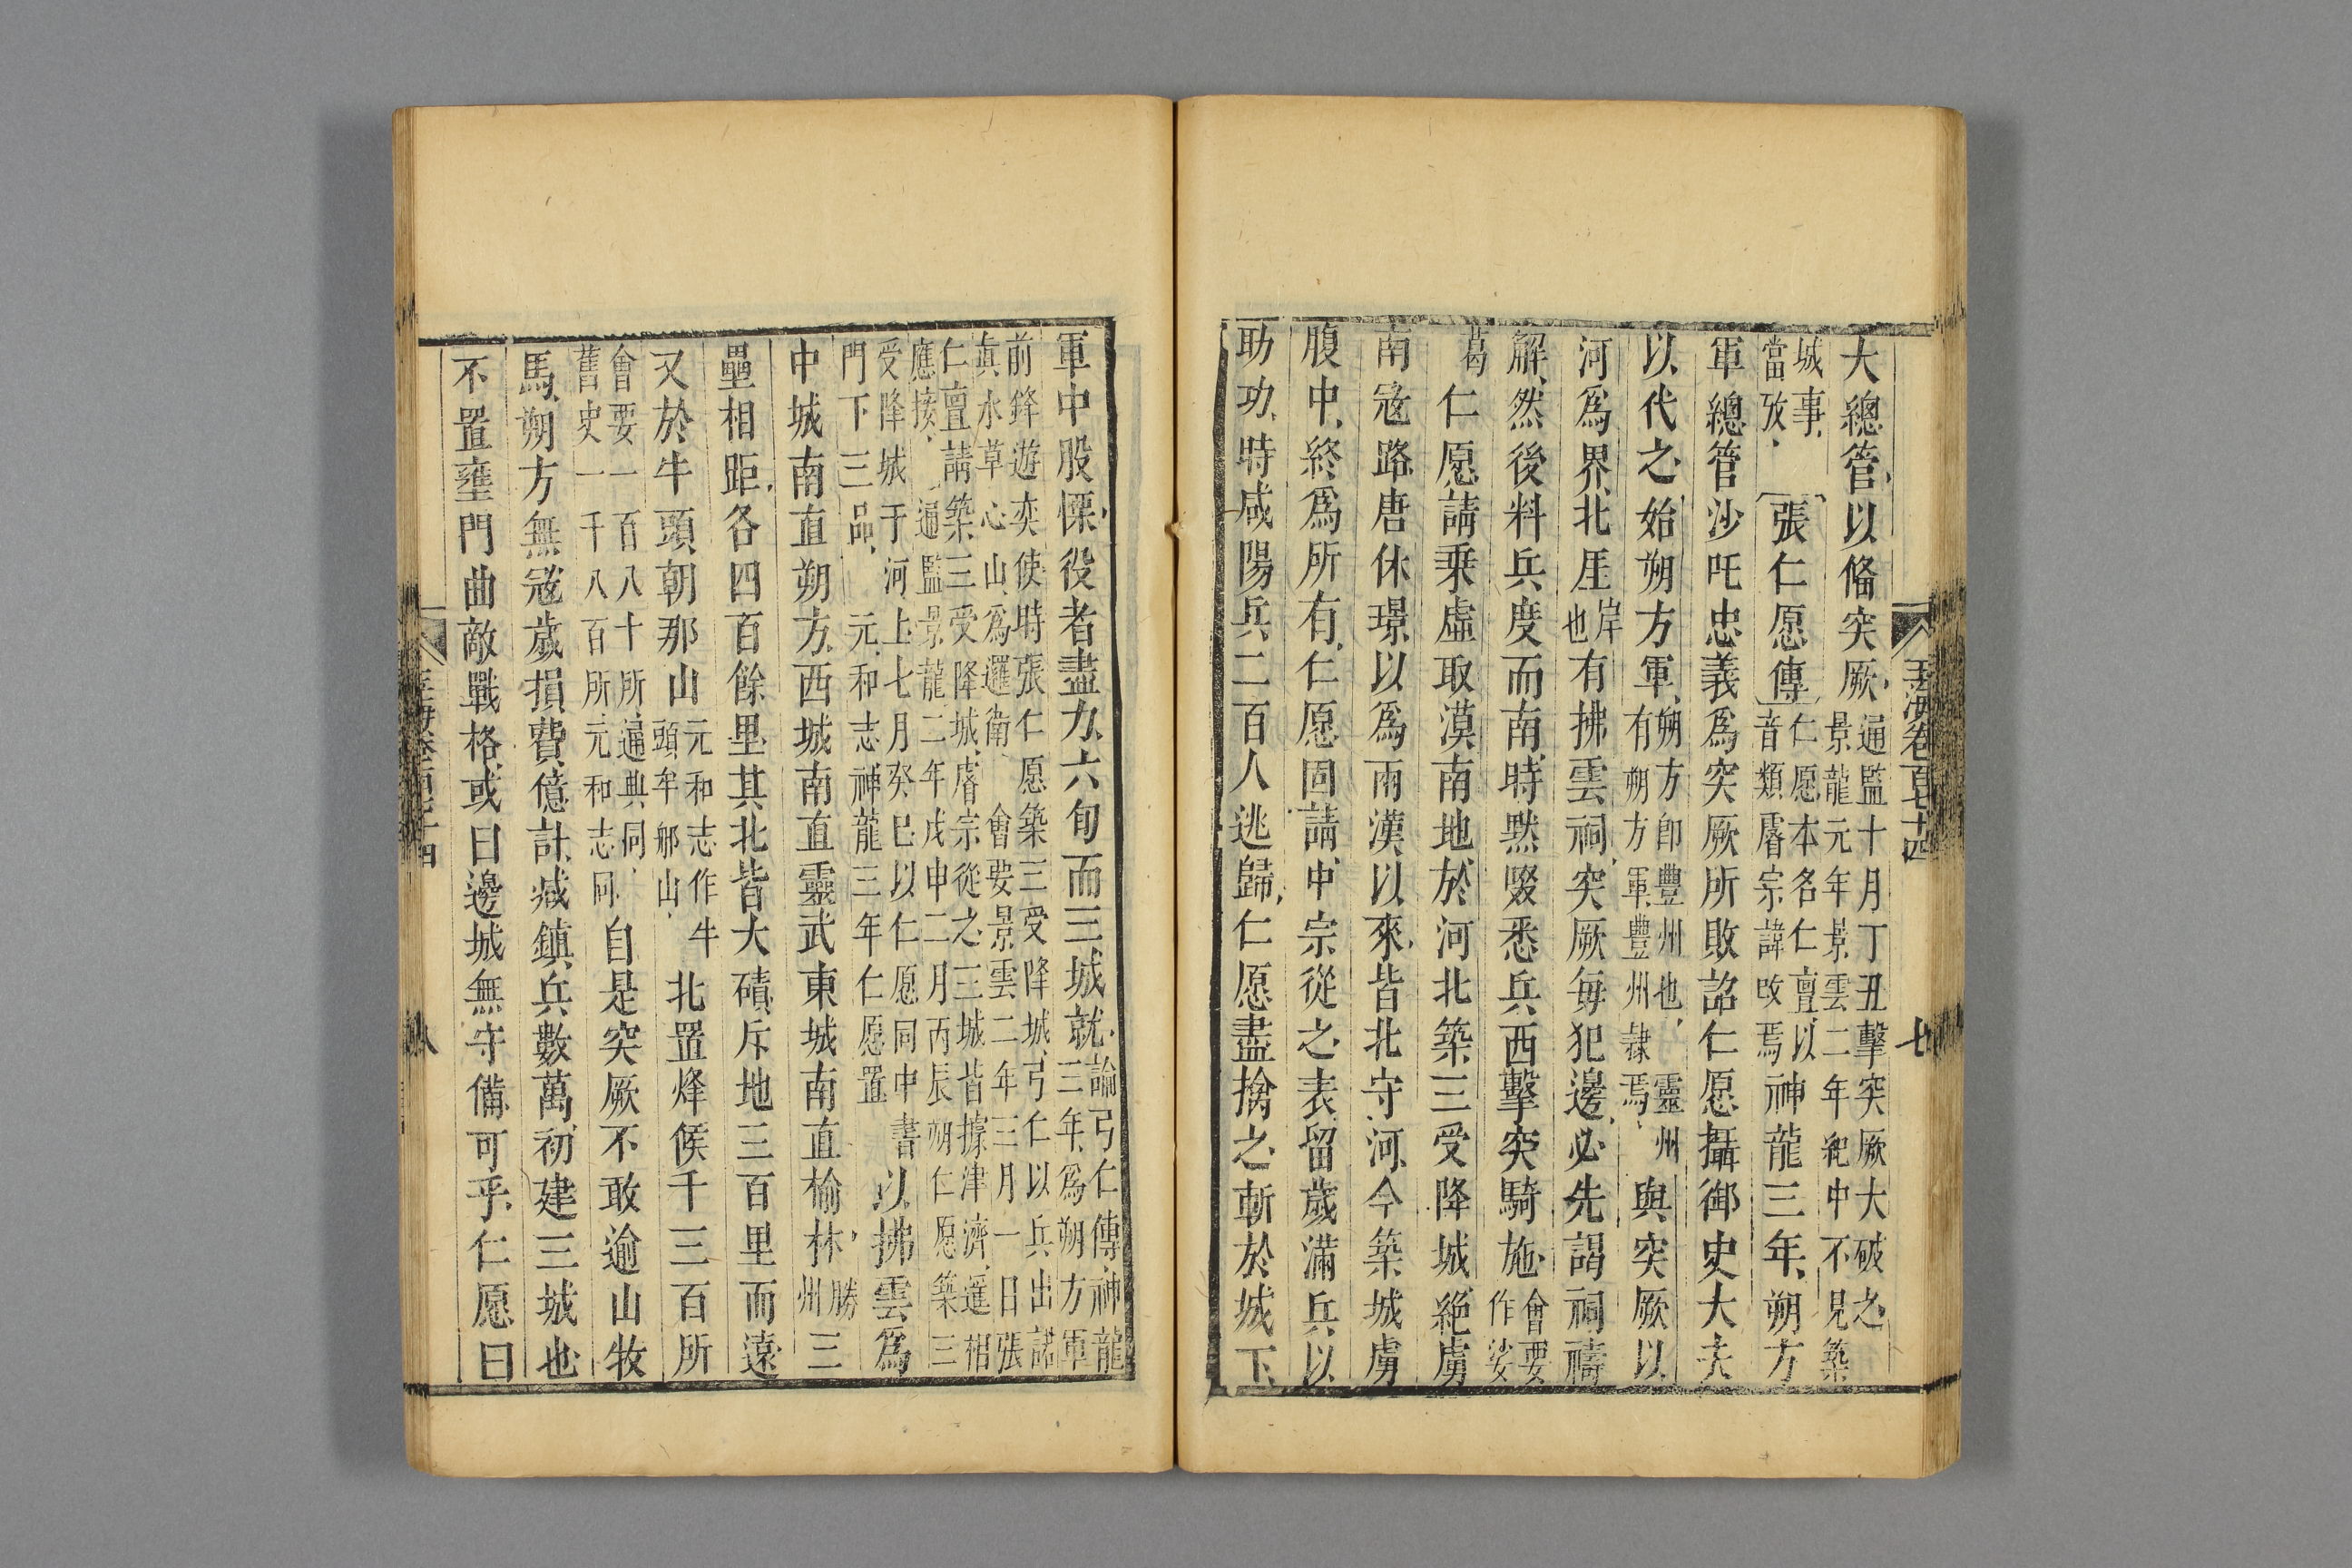 玉海卷百七十四
七
大總管以備突厥通監十月丁丑擊突厥大破之景龍元年景雲二年紀中不見築
城事當攷張仁愿傳仁愿本名仁亶以音類睿宗諱改焉神龍三年朔方
軍總管沙吒忠義爲突厥所敗詔仁愿攝御史大夫
以代之始朔方軍朔方卽豐州也靈州有朔方軍豐州隷焉與突厥以
河爲界北厓岸也有拂雲祠突厥每犯邊必先謁祠禱
解然後料兵度而南時黙啜悉兵西擊突騎施會要作娑
葛仁愿請乗虛取漠南地於河北築三受降城絶虜
南寇路唐休璟以爲兩漢以來皆北守河今築城虜
腹中終爲所有仁愿固請中宗從之表留歲滿兵以
助功時咸陽兵二百人逃歸仁愿盡擒之斬於城下
軍中股慄役者盡力六旬而三城就論弓仁傳神龍三年爲朔方軍
前鋒遊奕使時張仁愿築三受降城弓仁以兵出諾眞水草心山爲邏衛會要景雲二年三月一日張
仁亶請築三受降城睿宗從之三城皆據津濟遥相應接通監景龍二年戊申二月丙辰朔仁愿築三
受降城于河上七月癸巳以仁愿同中書門下三品元和志神龍三年仁愿置以拂雲爲
中城南直朔方西城南直靈武東城南直榆林勝州三
壘相距各四百餘里其北皆大磧斥地三百里而遠
又於牛頭朝那山元和志作牛頭牟郍山北置烽候千三百所
會要一百八十所通典同舊史一千八百所元和志同自是突厥不敢逾山牧
馬朔方無寇歲損費億計减鎮兵數萬初建三城也
不置壅門曲敵戰格或曰邊城無守備可乎仁愿曰
八